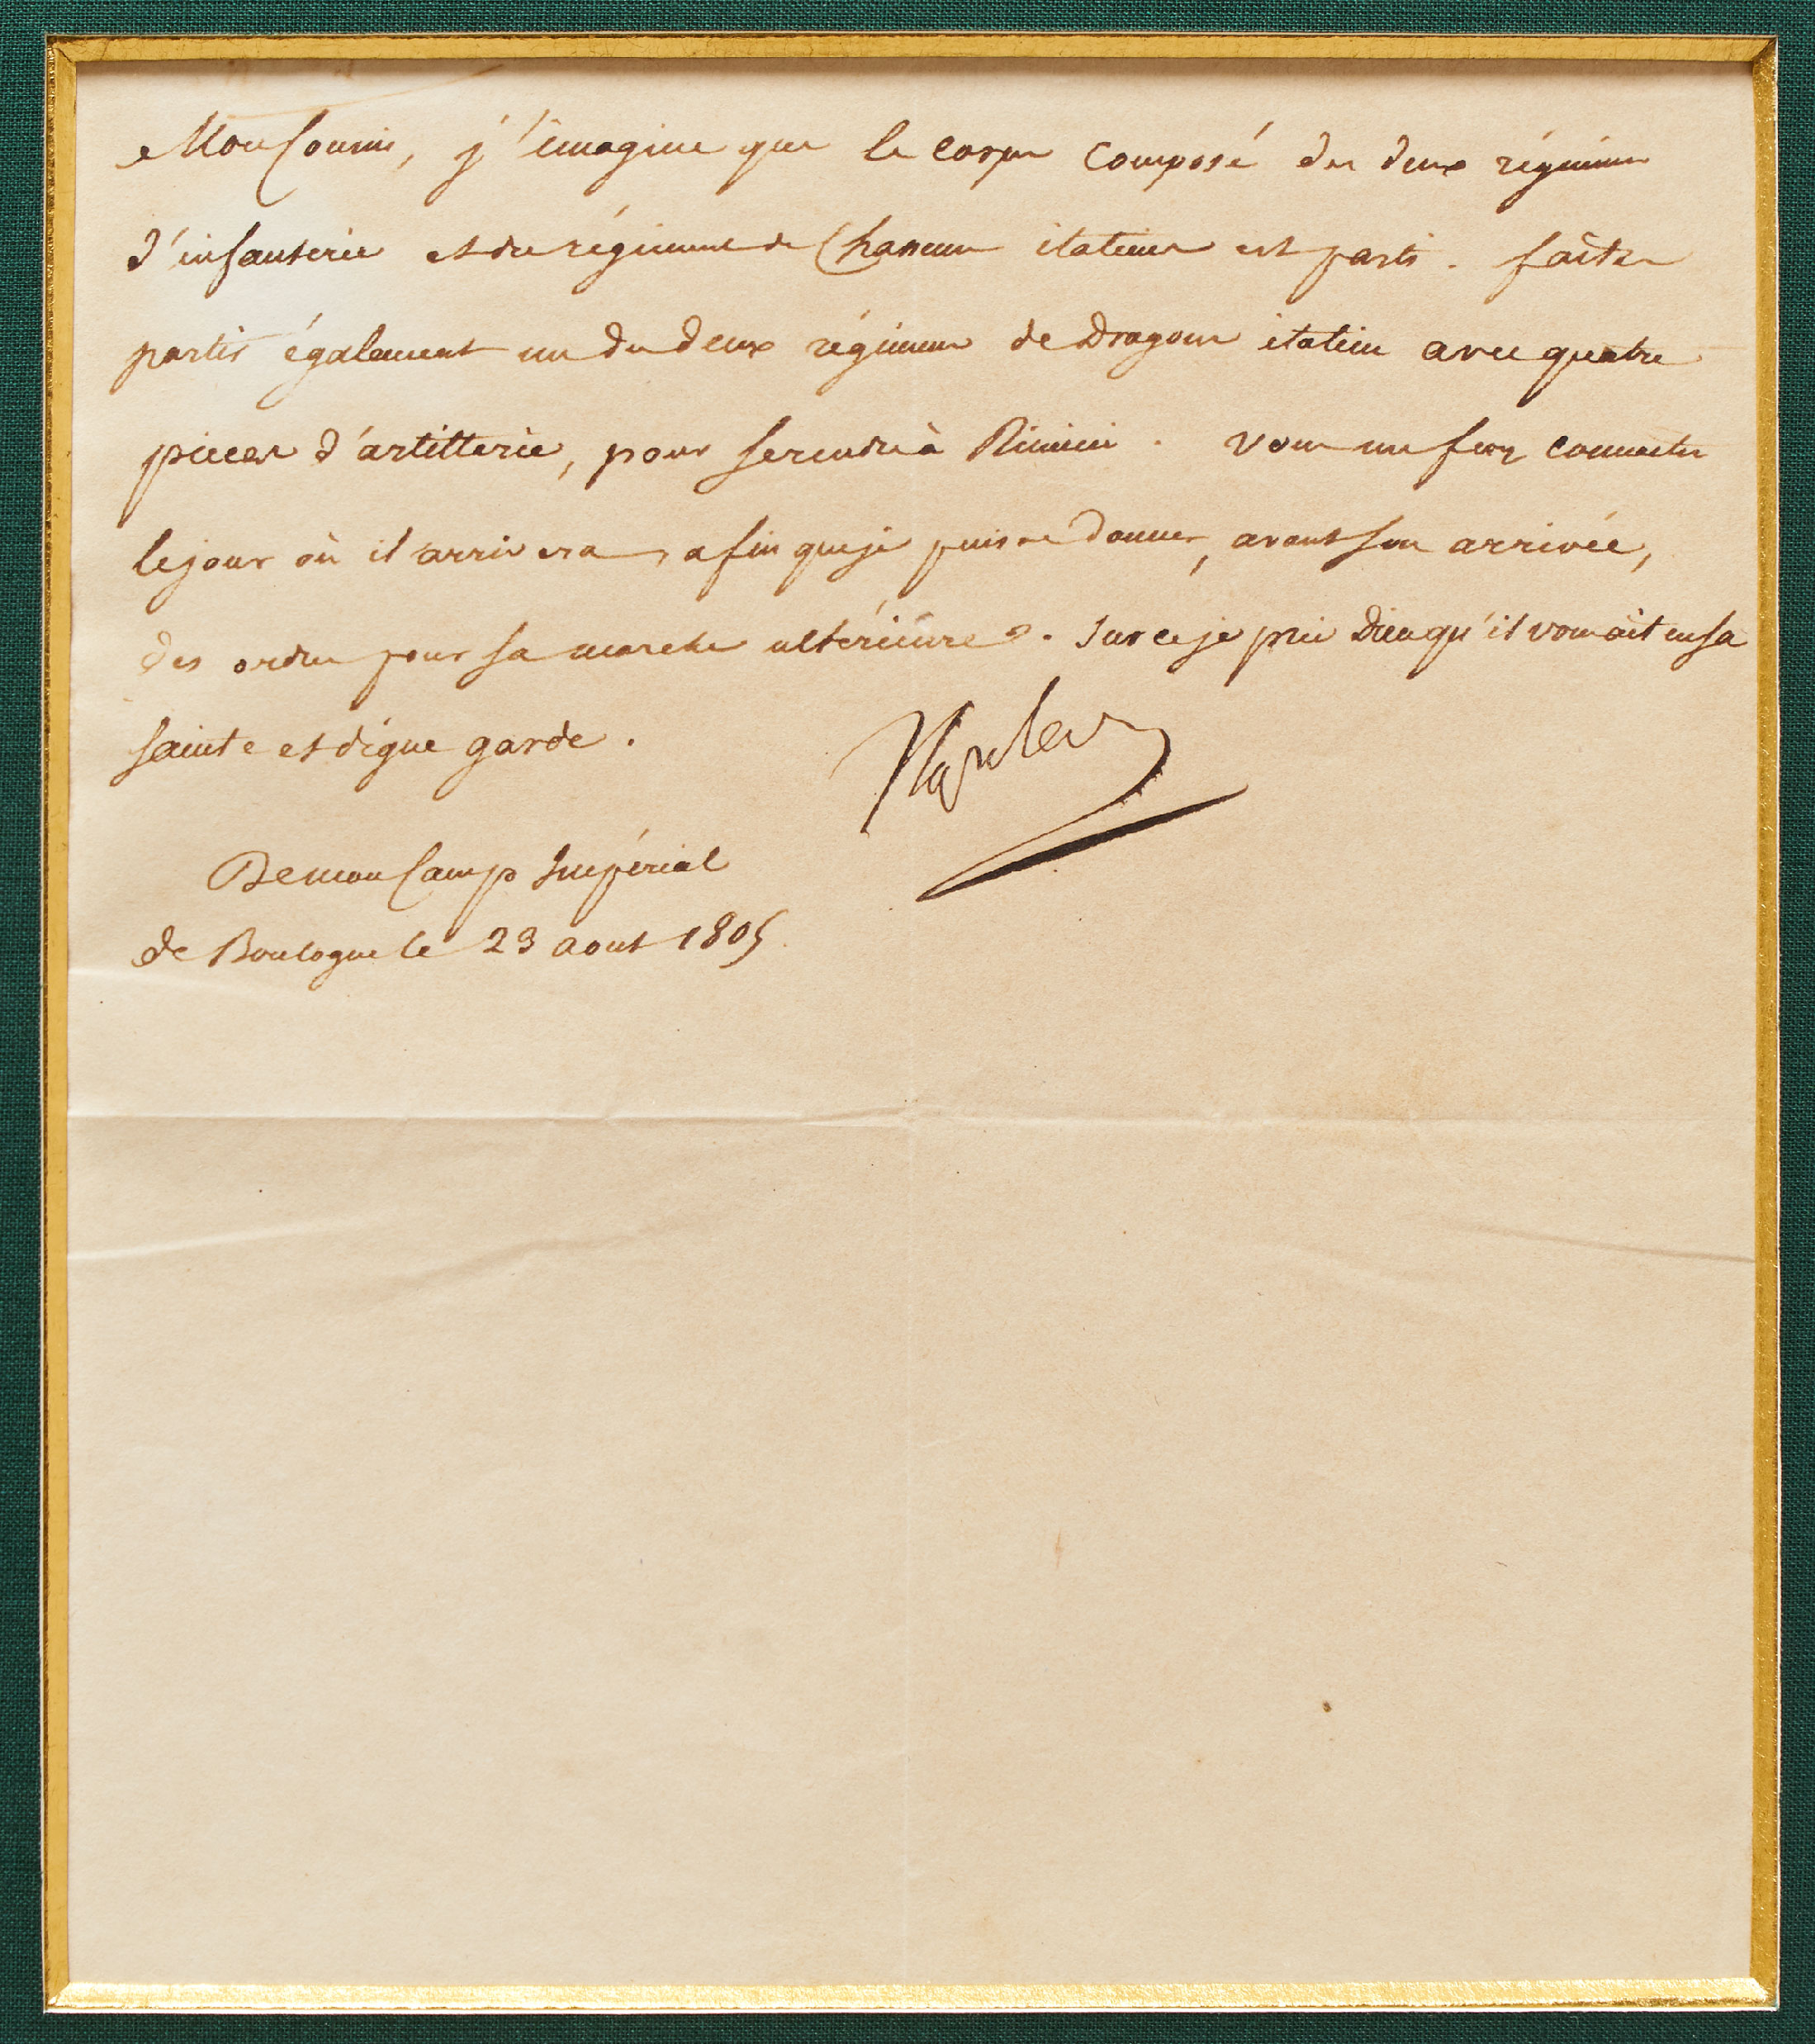 Mon Cousin, j'imagine que le corps composé des deux régimens
d'infanterie et du régiment de Chasseurs italiens est parti. faites
partir également un des deux régimens de Dragons italiens avec quatre
pieces d'artillerie, pour se rendre à Rimini. vous me ferez connaitre
le jour où il arrivera, afin que je puisse donner, avant son arrivée,
des ordres pour sa marche ultérieure. Sur ce je prie Dieu qu'il vous ait en sa
sainte et digne garde.
Napoleon
De mon Camp Impérial
de Boulogne le 23 aout 1805